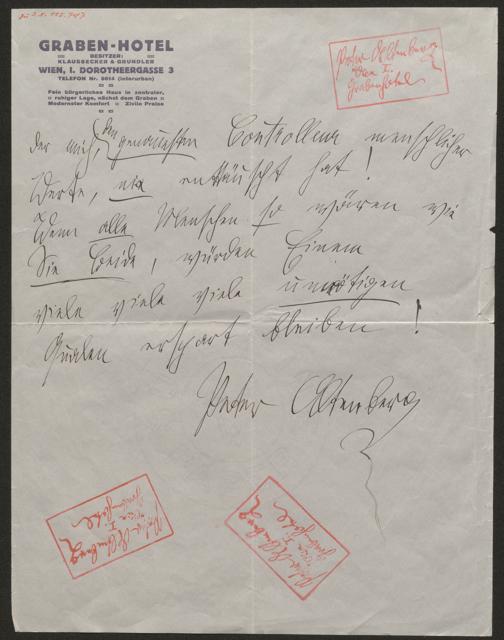 GRABEN-HOTEL
BESITZER:
KLAUSBECKER & GRUNDLER
WIEN, I. DOROTHEERGASSE 3
TELEFON Nr. 9814 (interurban)
Fein bürgerliches Haus in zentraler,
ruhiger Lage, nächst dem Graben
Modernster Komfort Zivile Preise
Peter Altenberg
Wien I.
Grabenhotel
der mich, den genauesten Controlleur menschlicher
Werte, nie enttäuscht hat!
Wenn alle Menschen so wären wie
Sie Beide, würden Einem
viele viele viele unnötigen
Qualen erspart bleiben!
Peter Altenberg
Peter Altenberg
Wien I.
Grabenhotel
Peter Altenberg
Wien I.
Grabenhotel